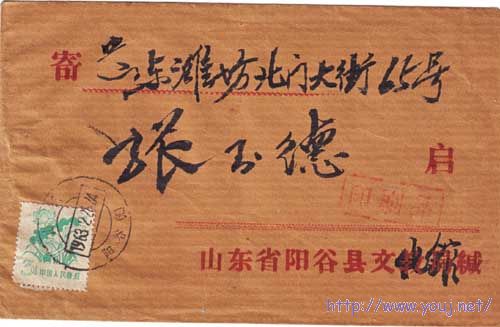 寄 山东潍坊北门大街65号
张玉德 启
印刷品
山东省阳谷县文化馆缄
1963
中国人民邮政
http://www.youj.net/